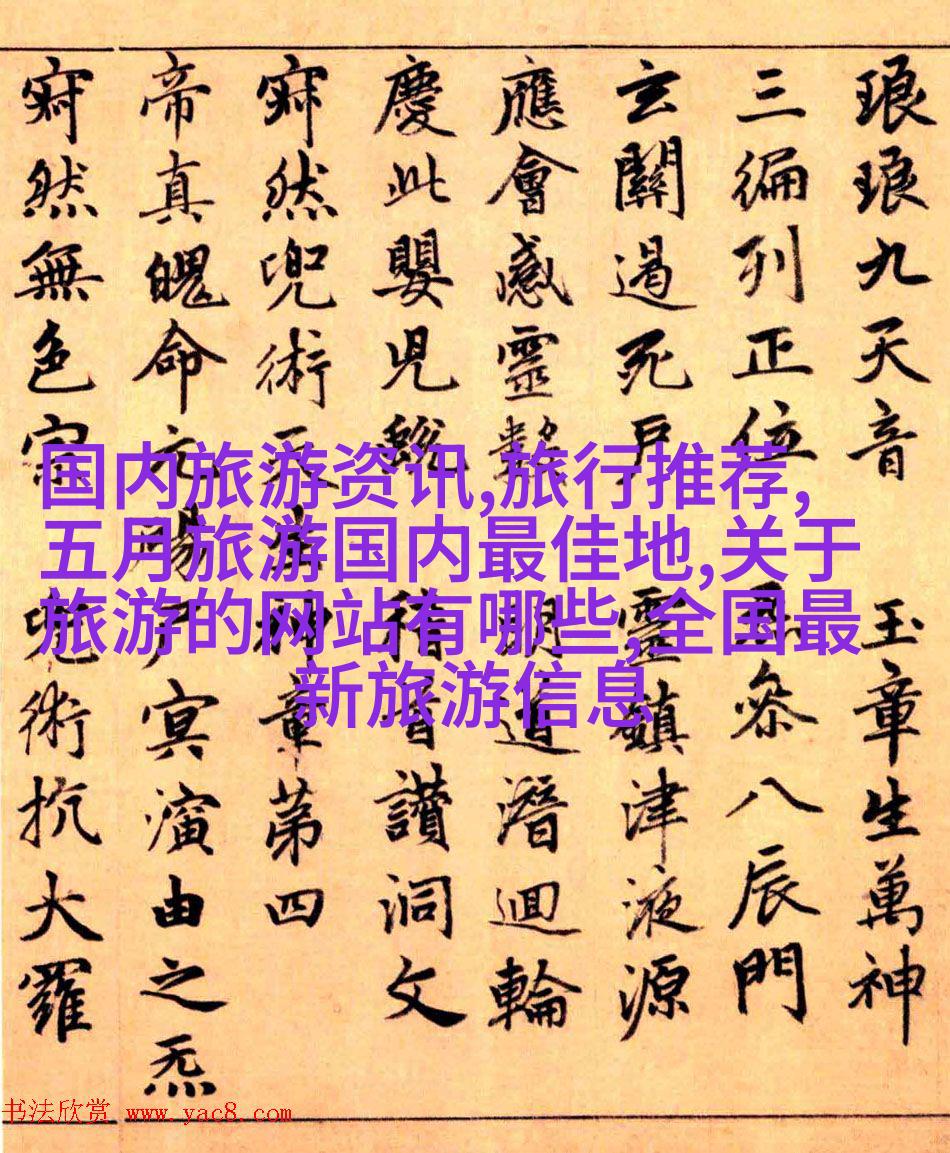 琅琅九天音 玉章生萬神
三徧列正位 叅八辰門
玄關過死戶 靈鎮津液源
應會感靈數 明道潛迴輪
慶此嬰兒蛻 稽首讚洞文
寂然兜術天生神章第四
帝真魄命元陽尸冥演由之炁
寂然無色宗 兜術抗大羅
国内旅游资讯,旅行推荐,
五月旅游国内最佳地,关于
旅游的网站有哪些,全国最
新旅游信息
书法欣赏 www.yac8.com